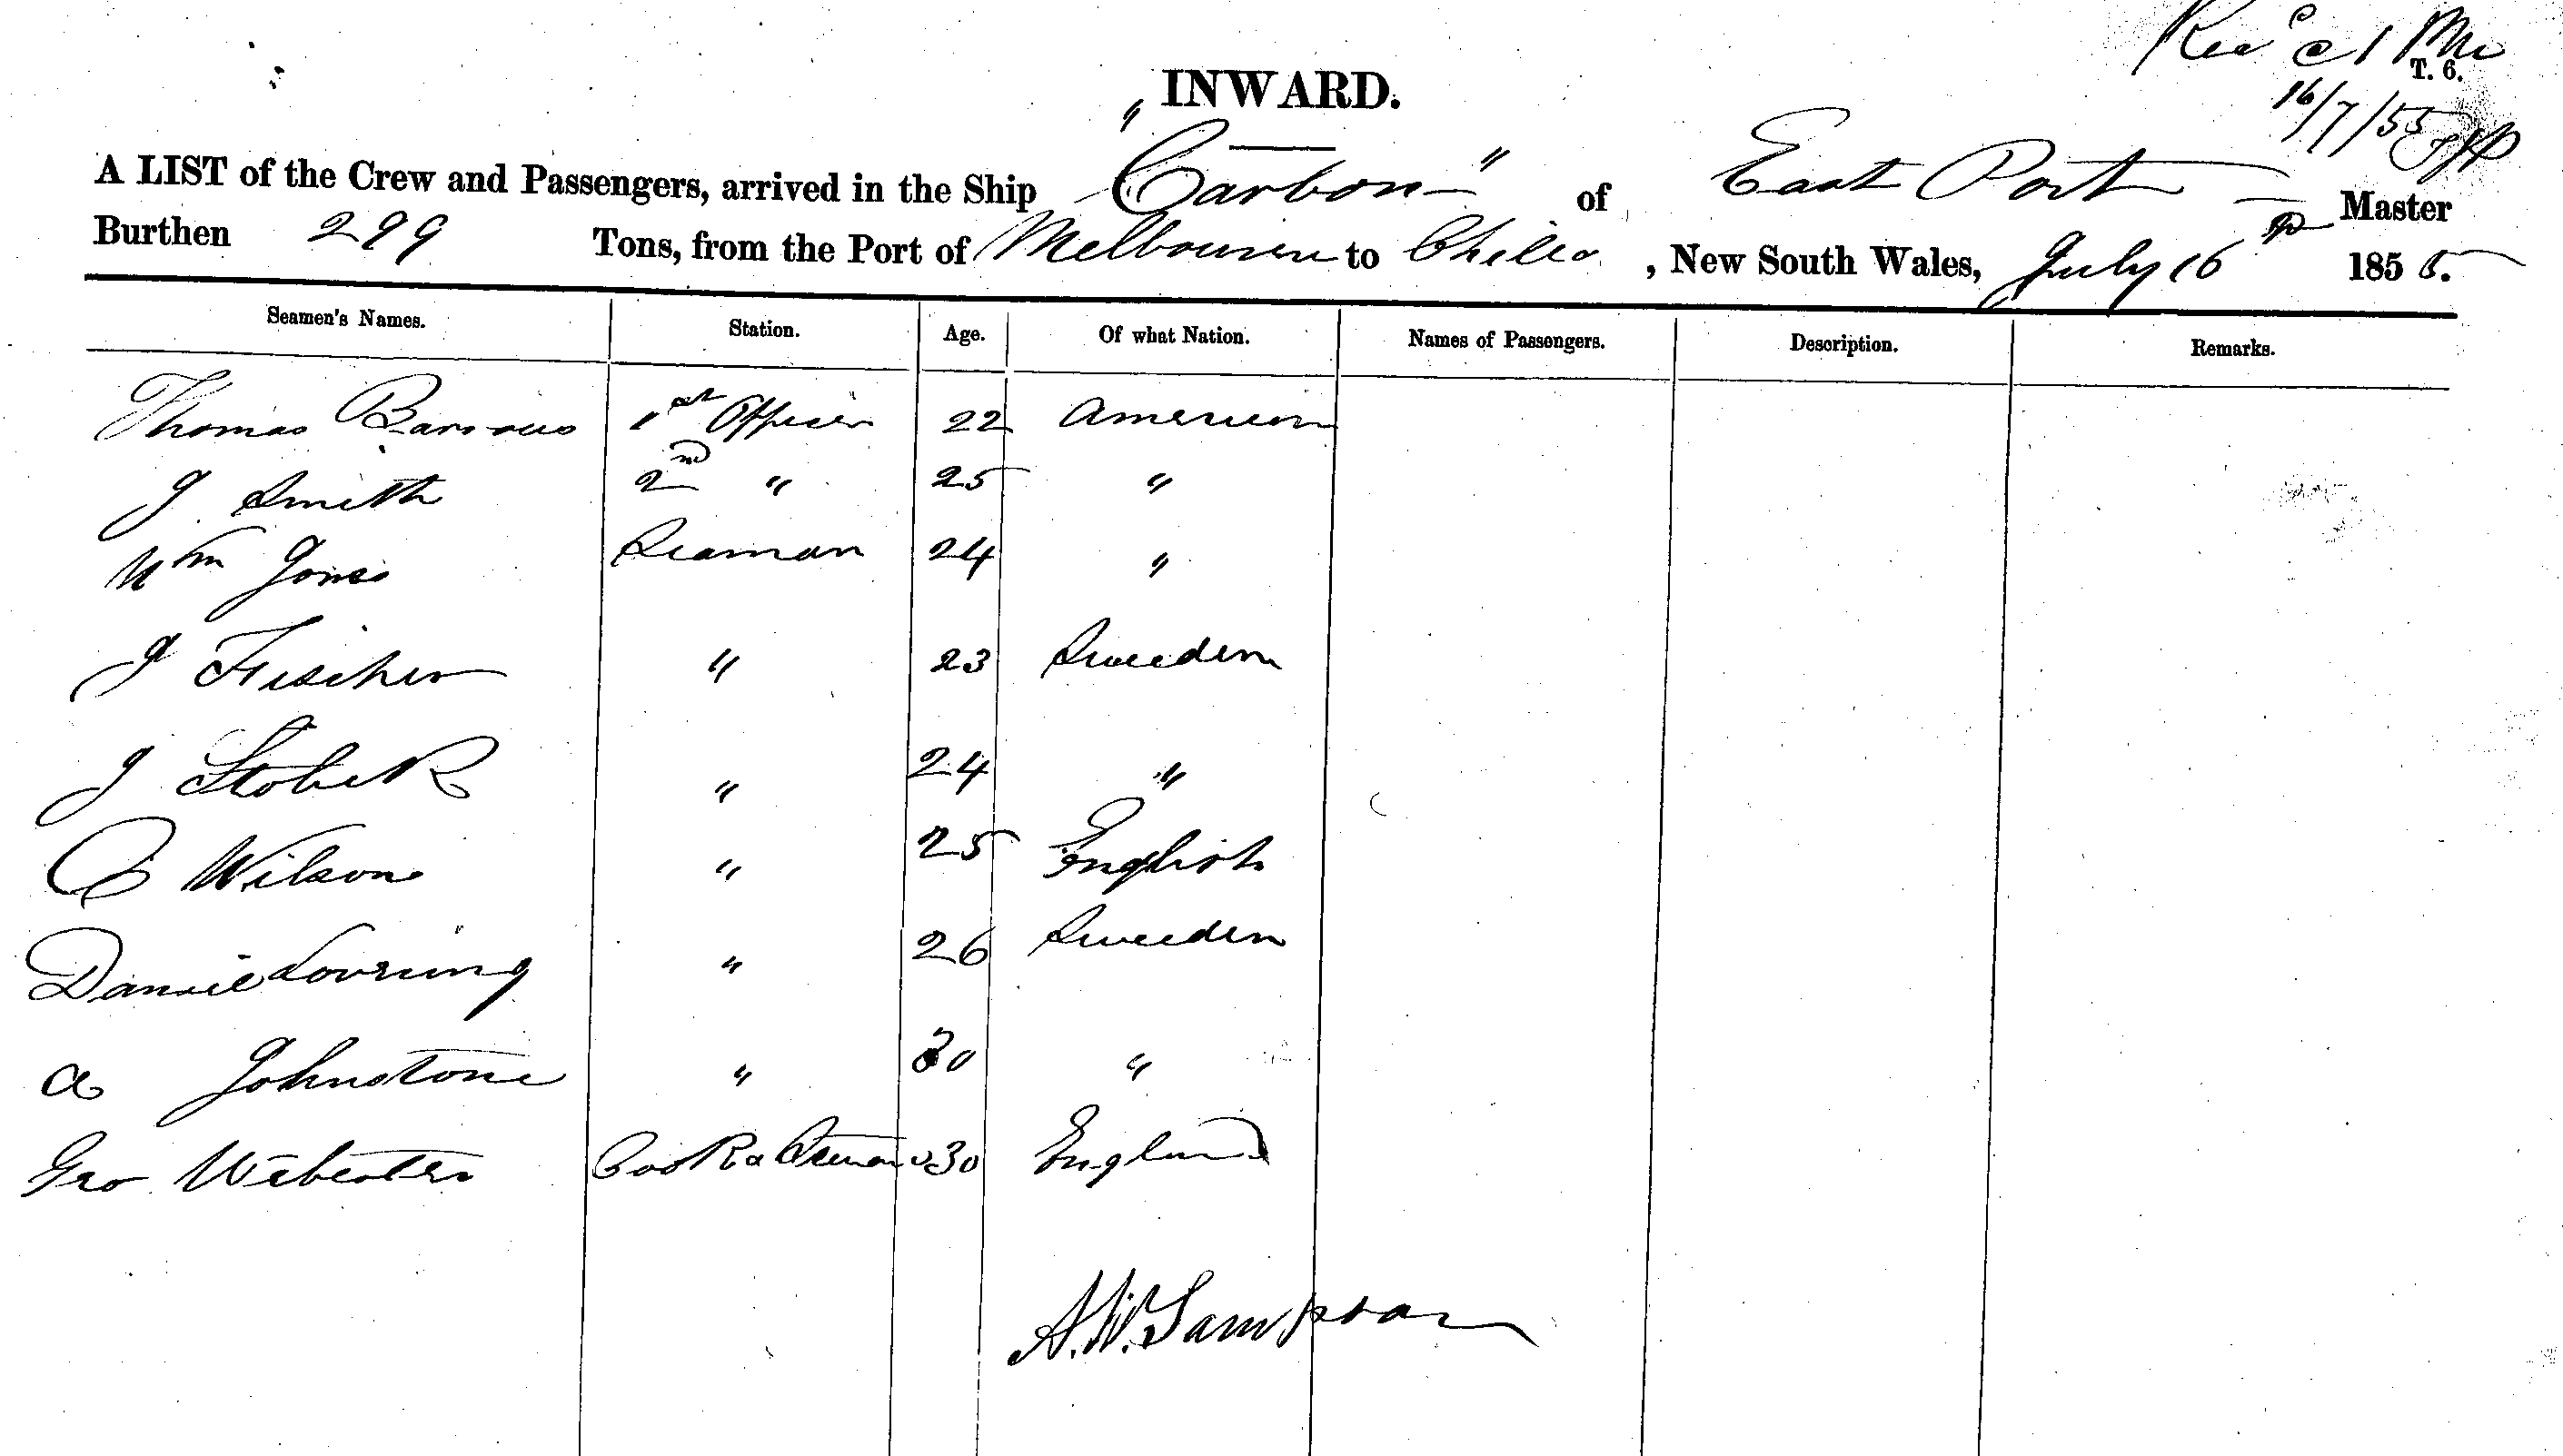 Rec'd
T. 6.
16/7/55
INWARD.
A LIST of the Crew and Passengers, arrived in the Ship "Carbon" of East Port Master
Burthen 299 Tons, from the Port of Melbourne to , New South Wales, July 16 1855.
Seamen's Names. Station. Age. Of what Nation. Names of Passengers. Description. Remarks.
Thomas 1st Officer 22 American
J Smith 2nd " 25 "
Wm Jones Seaman 24 "
J Fischer " 23 Sweeden
J " 24 "
C Wilson " 25 English
Daniel " 26 Sweeden
A Johnstone " 30 "
Geo Webster Cook & 30 England
A.W. Sampson